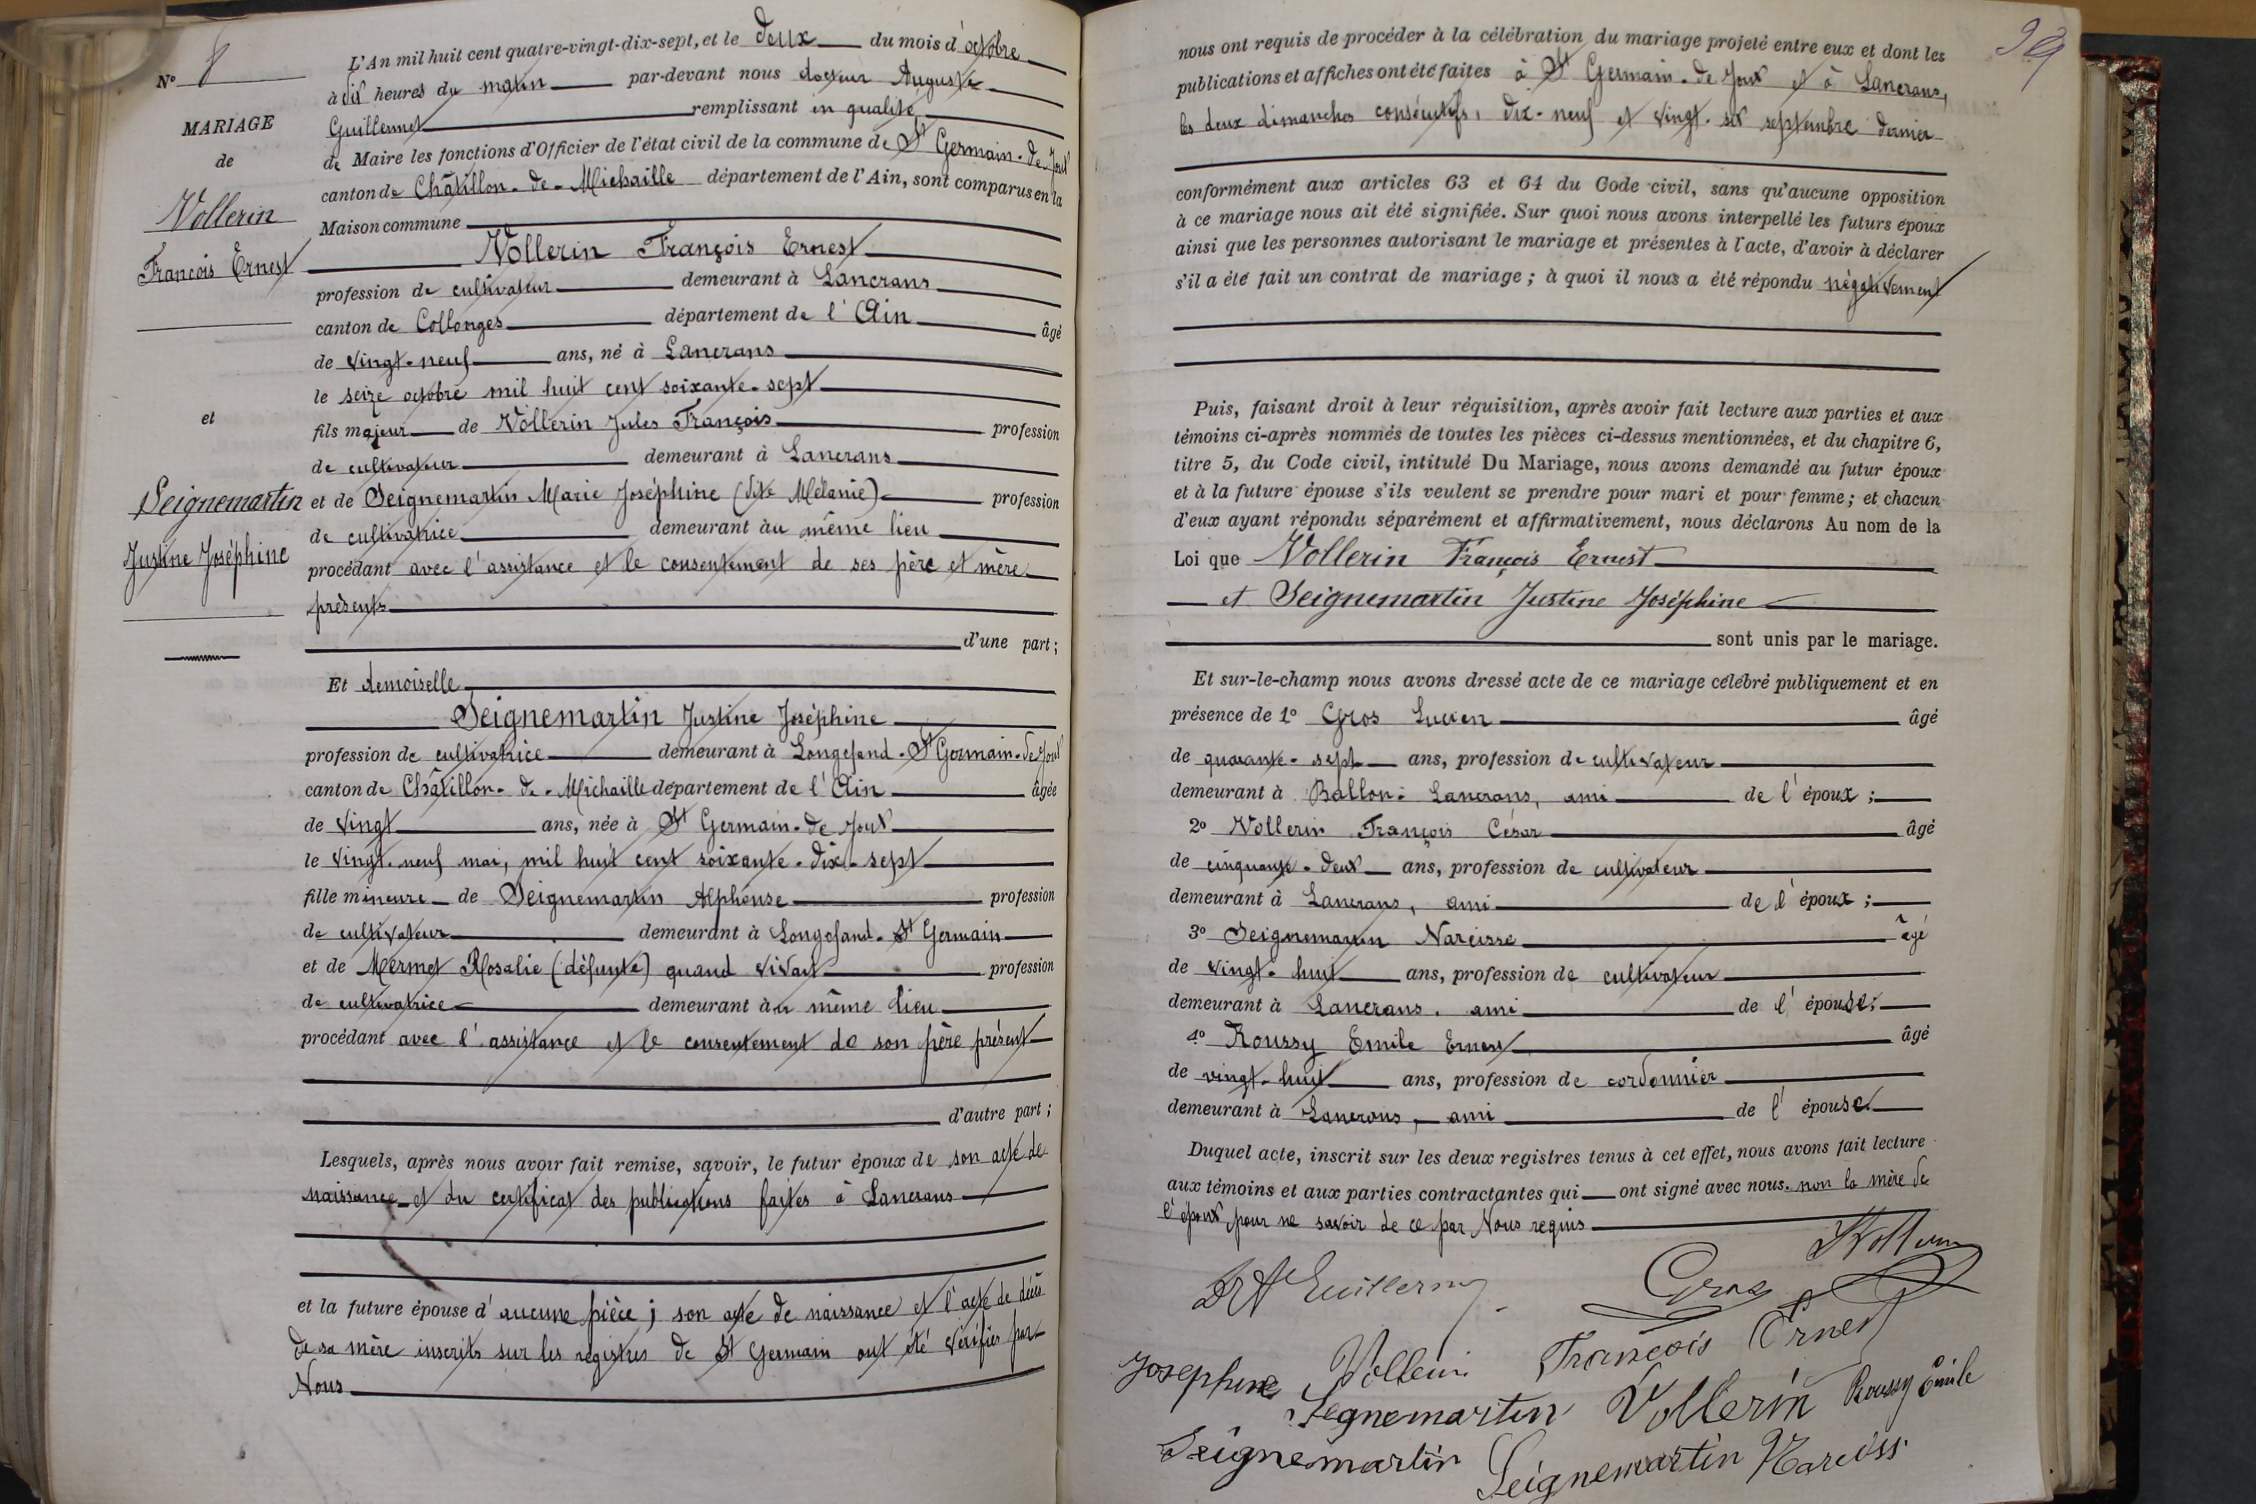 N° 8
MARIAGE
de
Vollerin
François Ernest
et
Seignemartin
Justine Joséphine
L'An mil huit cent quatre-vingt-dix-sept, et le deux du mois d'octobre
à dix heures du matin par-devant nous docteur Auguste
Guillermet remplissant en qualité
de Maire les fonctions d'Officier de l'état civil de la commune de St Germain-de-Joux
canton de Châtillon-de-Michaille département de l'Ain, sont comparus en la
Maison commune
Vollerin François Ernest
profession de cultivateur demeurant à Lancrans
canton de Collonges département de l'Ain âgé
de vingt-neuf ans, né à Lancrans
le seize octobre mil huit cent soixante-sept
fils majeur de Vollerin Jules François profession
de cultivateur demeurant à Lancrans
et de Seignemartin Marie Joséphine (dite Mélanie) profession
de cultivatrice demeurant àu même lieu
procédant avec l'assistance et le consentement de ses père et mère
présents
d'une part;
Et demoiselle
Seignemartin Justine Joséphine
profession de cultivatrice demeurant à Longefand-St Germain-de-Joux
canton de Châtillon-de-Michaille département de l'Ain âgée
de vingt ans, née à St Germain-de-Joux
le vingt-neuf mai, mil huit cent soixante-dix-sept
fille mineure de Seignemartin Alphonse profession
de cultivateur demeurant à Longefand-St Germain
et de Mermet Rosalie (défunte) quand vivait profession
de cultivatrice demeurant àu même lieu
procédant avec l'assistance et le consentement de son père présent
d'autre part;
Lesquels, après nous avoir fait remise, savoir, le futur époux de son acte de
naissance et du certificat des publications faites à Lancrans
et la future épouse d'aucune pièce; son acte de naissance et l'acte de décès
de sa mère inscrits sur les registres de St Germain ont été vérifiés par
Nous
nous ont requis de procéder à la célébration du mariage projeté entre eux et dont les
publications et affiches ont été faites à St Germain-de-Joux et à Lancrans,
les deux dimanches consécutifs, dix-neuf et vingt-six septembre dernier
conformément aux articles 63 et 64 du Code civil, sans qu'aucune opposition
à ce mariage nous ait été signifiée. Sur quoi nous avons interpellé les futurs époux
ainsi que les personnes autorisant le mariage et présentes à l'acte, d'avoir à déclarer
s'il a été fait un contrat de mariage; à quoi il nous a été répondu négativement
Puis, faisant droit à leur réquisition, après avoir fait lecture aux parties et aux
témoins ci-après nommés de toutes les pièces ci-dessus mentionnées, et du chapitre 6,
titre 5, du Code civil, intitulé Du Mariage, nous avons demandé au futur époux
et à la future épouse s'ils veulent se prendre pour mari et pour femme; et chacun
d'eux ayant répondu séparément et affirmativement, nous déclarons Au nom de la
Loi que Vollerin François Ernest
et Seignemartin Justine Joséphine
sont unis par le mariage.
Et sur-le-champ nous avons dressé acte de ce mariage célébré publiquement et en
présence de 1° Gros Lucien âgé
de quarante-sept ans, profession de cultivateur
demeurant à Ballon-Lancrans, ami de l'époux;
2° Vollerin François César âgé
de cinquante-deux ans, profession de cultivateur
demeurant à Lancrans, ami de l'époux;
3° Seignemartin Narcisse âgé
de vingt-huit ans, profession de cultivateur
demeurant à Lancrans, ami de l'épouse;
4° Roussy Emile Ernest âgé
de vingt-huit ans, profession de cordonnier
demeurant à Lancrans, ami de l'épouse.
Duquel acte, inscrit sur les deux registres tenus à cet effet, nous avons fait lecture
aux témoins et aux parties contractantes qui ont signé avec nous. non la mère de
l'époux pour ne savoir de ce par Nous requis
Dr A Guillermet Gros Vollerin
Josephine Vollerin François Ernest
Segnemartin Vollerin Roussy Emile
Seignemartin Seignemartin Narciss